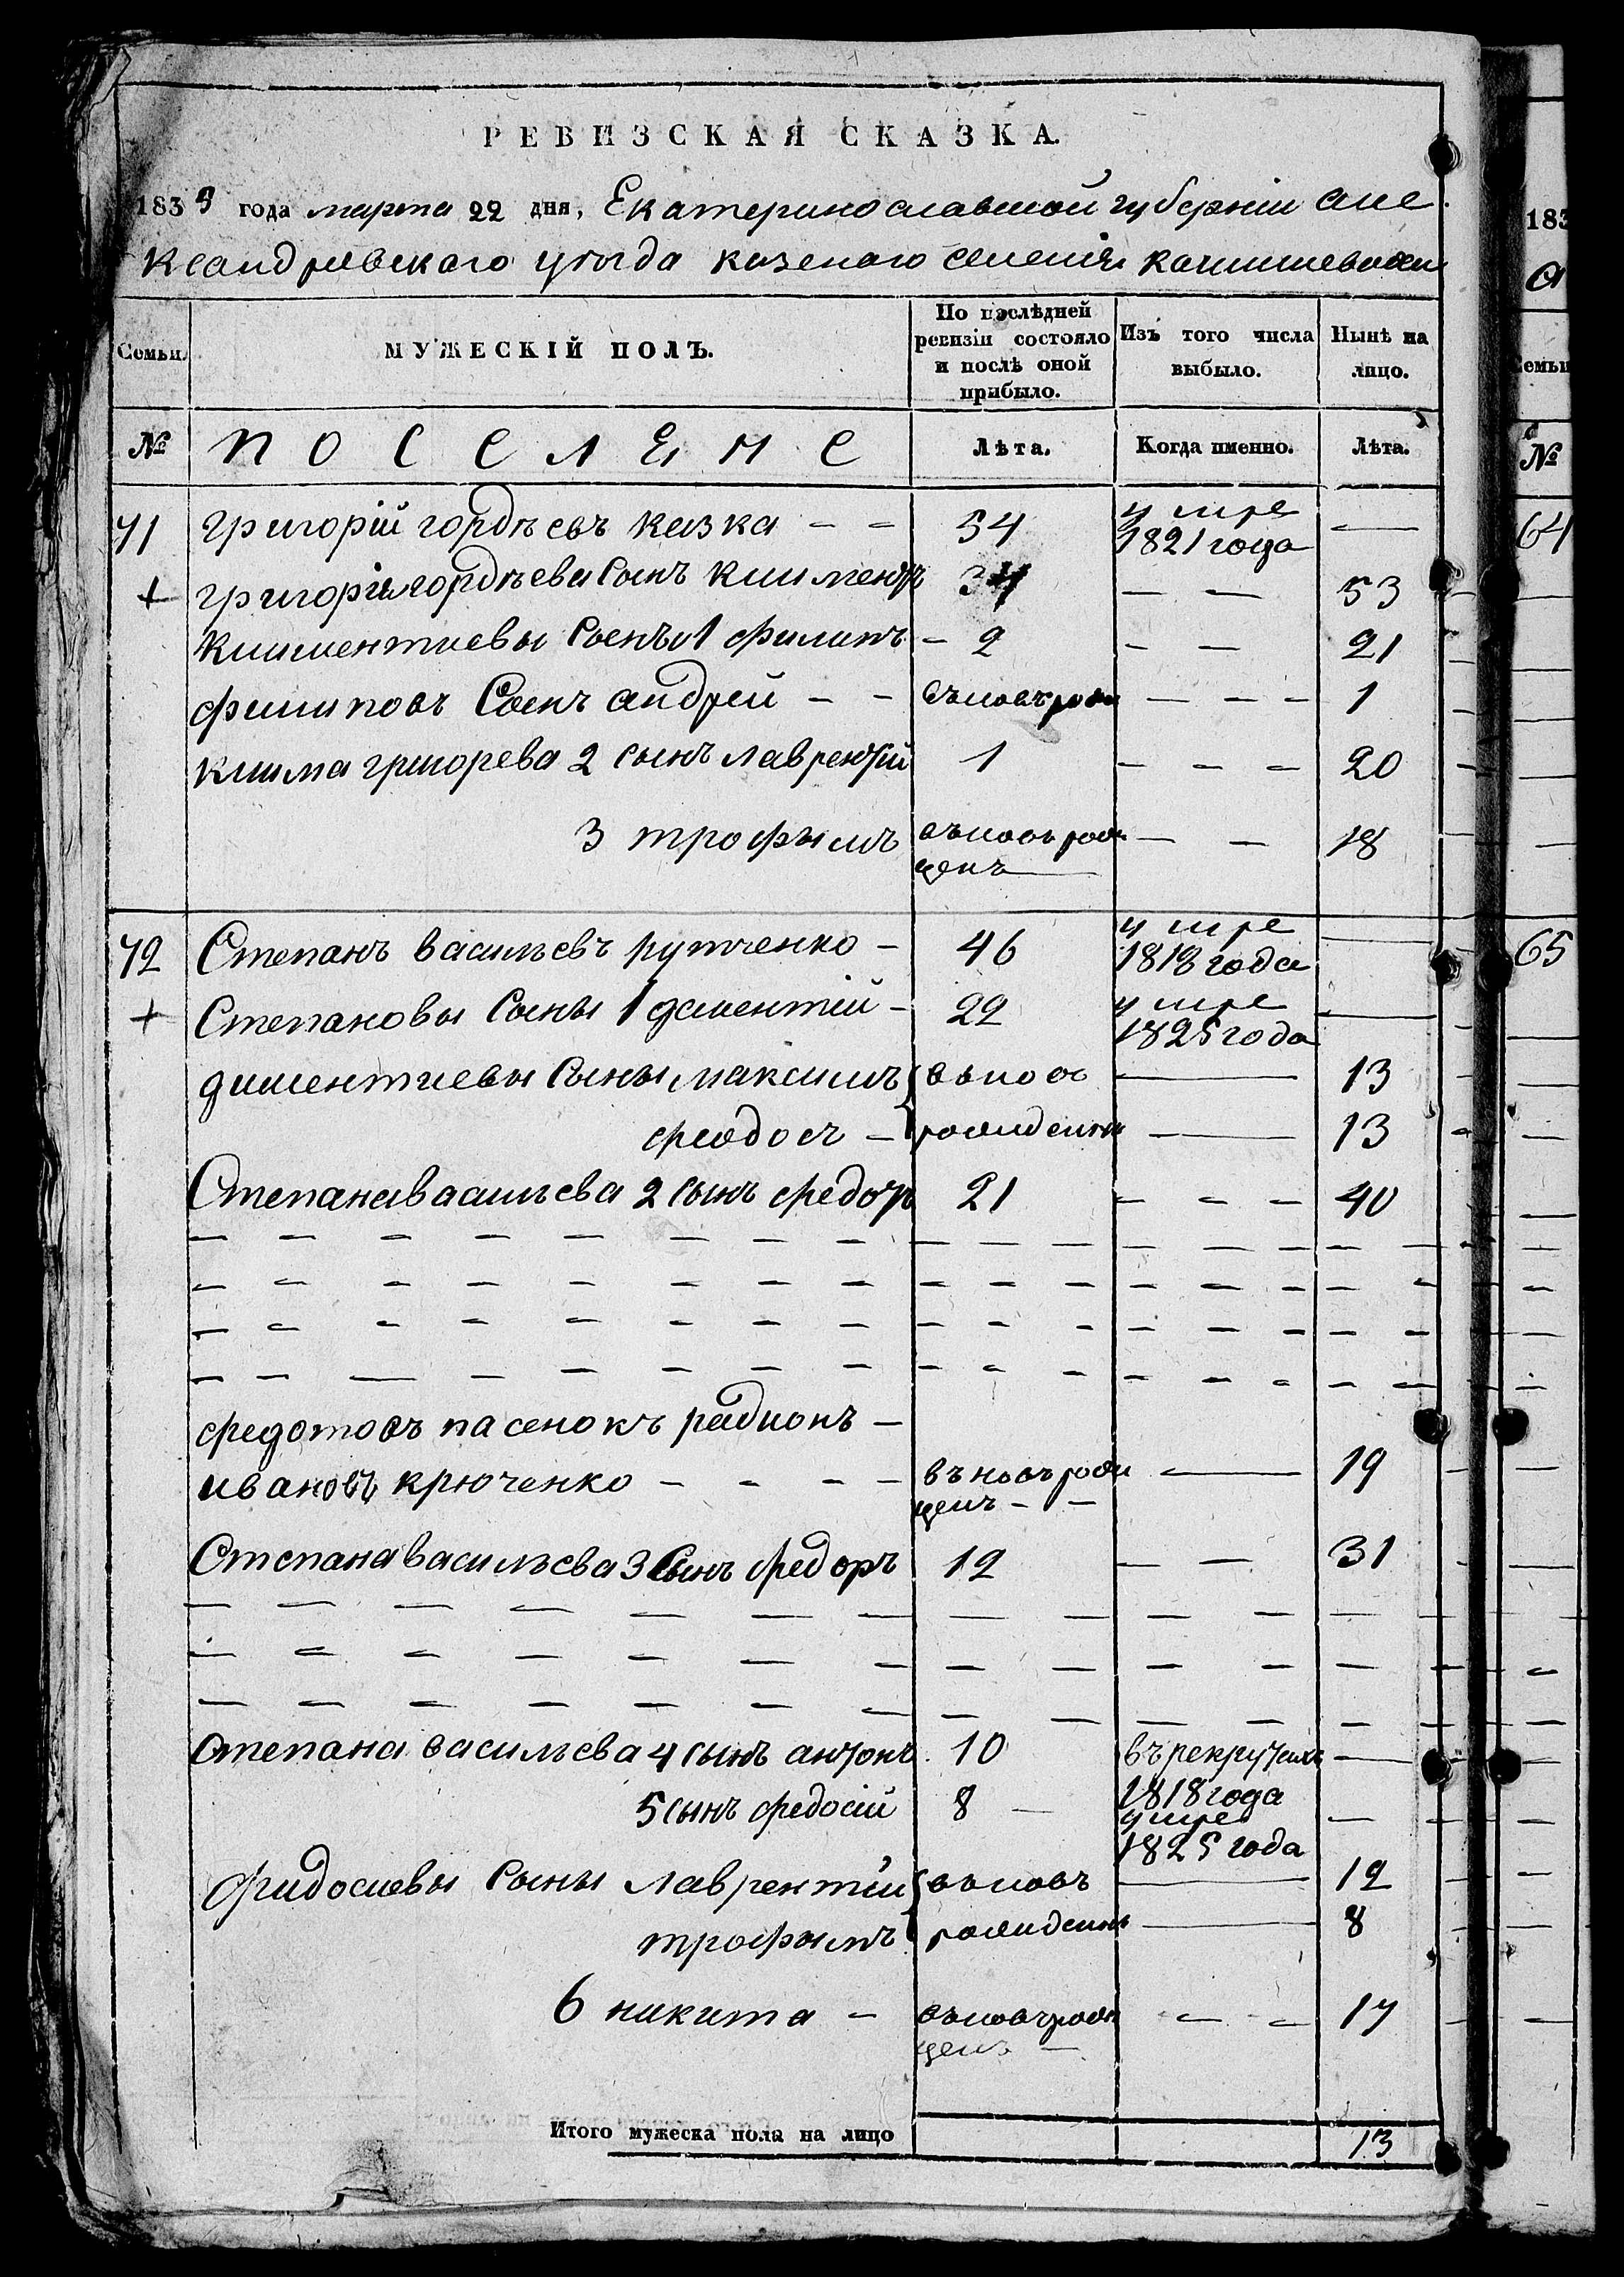 РЕВИЗСКАЯ СКАЗКА.
1835 года марта 22 дня, Екатеринославской губернiи Але
ксандровскаго уѣзда казенаго селенiя
Семьи.
МУЖЕСКIЙ ПОЛЪ.
По послѣдней ревизiи состояло и послѣ оной прибыло.
Изъ того числа выбыло.
Нынѣ на лицо.
№ ПОСЕЛЕНЕ Лѣта. Когда именно. Лѣта.
71 григорiй гордѣевъ казка - - 54 умре 1821 года —
+ григорiя гордѣева Сынъ климентъ 34 — — 53
климентиевы Сынъ 1 филипъ - 2 - — 21
филиповъ Сынъ андрей - - вновь рож — - - 1
клима григорева 2 сынъ лаврентiй 1 - - - 20
3 трофымъ вновь рож
денъ — - 18
72 Степанъ васильевъ рутченко - 46 умре 1818 года —
+ Степановы Сыны 1 дементiй - 22 умре 1825 года —
диментиевы Сыны максимъ вновь — 13
феодосъ - рожденны — 13
Степана васильева 2 сынъ федотъ 21 - - - 40
федотовъ пасенокъ радионъ -
ивановъ крюченко - - - - въновъ рож
денъ - - — 19
Степана васильева 3 Сынъ федоръ 12 - — 31
Степана васильева 4 сынъ антонъ 10 въ рекрутахъ 1818 года —
5 сынъ федосiй 8 - умре 1825 года —
фидосиевы Сыны лаврентiй вновь — 12
трофымъ рожденны — 8
6 никита - вновь рож
денъ - - - 17
Итого мужеска пола на лицо 13
183
Семьи
№
64
65